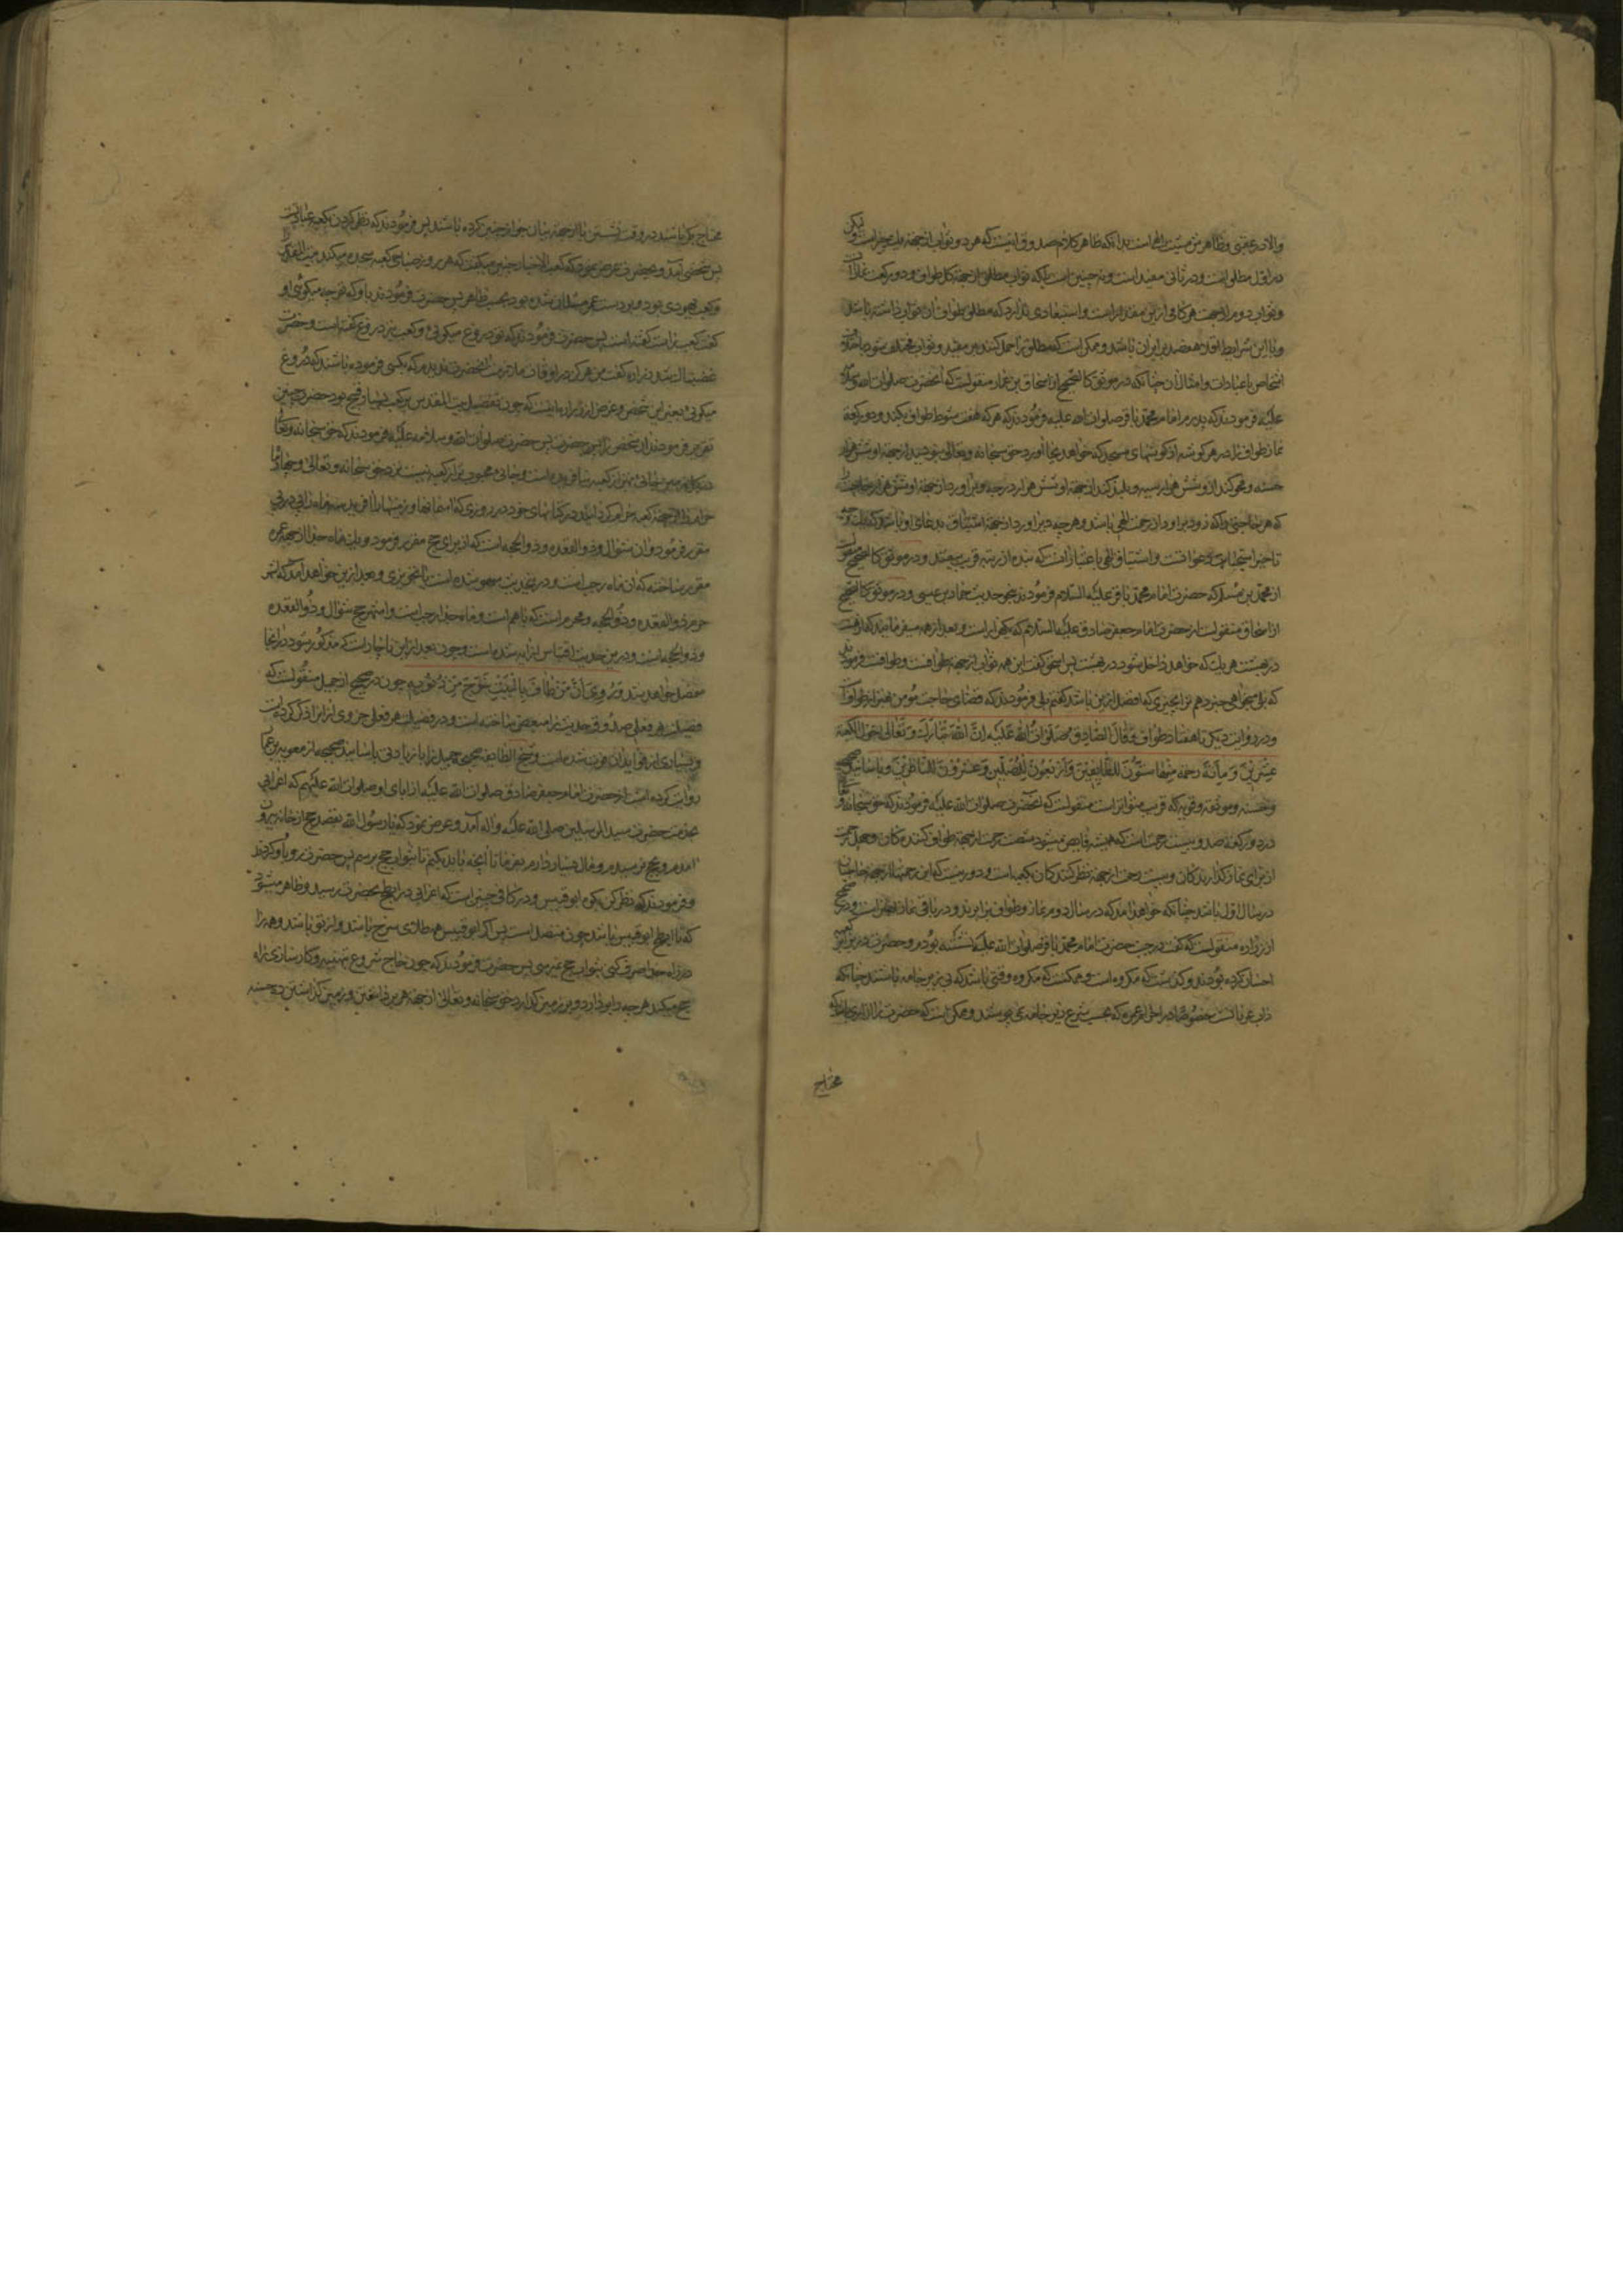 والا در عقبی و ظاهرش میّت الهاست بدانکه ظاهر کلام صدوق اینست که هر دو ثواب از جهة یک چیز است ولیکن
در اول مطلق است و در ثانی مقید است و نه چنین است بلکه ثواب مطلق از جهة کل طواف و دو رکعت نماز آنست
و ثواب دوم از جهت هر کامی از این مقید است و استبعادی ندارد که مطلق طواف آن ثواب داشته باشد
و با این شرایط اقلا هفصد برابر آن باشد و ممکن است که مطلق را حمل کنند بر مقید و ثواب مختلف شود باختلاف
اشخاص با عبادات و امثال آن چنانکه در موثق کالصحیح از اسحاق بن عمار منقولست که آنحضرت صلوات الله و سلامه
علیه فرمودند که پدرم امام محمد باقر صلوات الله علیه فرمودند که هر که هفت شوط طواف بکند و دو رکعة
نماز طواف را در هر گوشه از گوشهای مسجد که خواهد بجا آورد حق سبحانه و تعالی بنویسد از جهة او شش هزار
حسنه و محو کند از او شش هزار سیئه و بلند کند از جهة او شش هزار درجه و برآورد از جهة او شش هزار حاجت را
که هر حاجتی را که زود برآورد از رحمت الهی باشد و هر چه دیر آورد از جهة اشتیاق به دعای او باشد که
تاخیر استجابت دعوات و اشتیاق الهی باعتبار آنست که بنده از رتبه قرب بیفتد و در موثق کالصحیح منقولست
از محمد بن مسلم که حضرت امام محمد باقر علیه السلام فرمودند بنحو حدیث حماد بن عیسی و در موثق کالصحیح
از اسحاق منقولست از حضرت امام جعفر صادق علیه السلام که یکهزار است و بعد از همه میفرمایند که از هشت
در بهشت هر یک که خواهد داخل شود در بهشت پس اسحق گفت این همه ثواب از جهة طوافست فرمودند
که بلی میخواهی خبر دهم ترا بچیزی که افضل از این باشد گفتم بلی فرمودند که قضای حاجت مؤمن بهتر از طواف است
و در روایت دیگر تا هفتاد طواف وَقَالَ الصَّادِقُ صَلَوَاتُ اللهِ عَلَیْهِ اِنَّ اللهَ تَبَارَکَ وَتَعَالٰی حَوْلَ الْکَعْبَةِ
عِشْرِیْنَ وَمِائَةَ رَحْمَةٍ مِنْهَا سِتُّوْنَ لِلطَّائِفِیْنَ وَاَرْبَعُوْنَ لِلْمُصَلِّیْنَ وَعِشْرُوْنَ لِلنَّاظِرِیْنَ و باسانید صحیحه
و حسنه و موثقه و قویه که قریب بتواتر است منقولست که آنحضرت صلوات الله علیه فرمودند که حق سبحانه و تعالی را
در دور کعبه صد و بیست رحمت است که همیشه فایض میشود شصت رحمت از جهة طواف کنندگان و چهل رحمت
از برای نماز گذارندگان و بیست رحمت از جهة نظر کنندگان بکعبه است
در سال اول باشد چنانکه خواهد آمد که در سال دوم نماز و طواف برابرند و در باقی نماز افضل است و در صحیح
از زراره منقولست که گفت در جنب حضرت امام محمد باقر صلوات الله علیه نشسته بودم و حضرت در برابر کعبه
احتبا کرده بودند و گذشت که مکروه است و ممکنست که مکروه وقتی باشد که بی زیر جامه باشند چنانکه
داب عربانست خصوصا در احرام عمره که بحسب شرع زیر جامه نمی پوشند و ممکن است که حضرت را آزاری باشد که
محتاج
محتاج بآن باشند در وقت نشستن یا از جهة بیان جواز چنین کرده باشند پس فرمودند که نظر کردن بکعبه عبادتست
پس شخصی آمد و بحضرت عرض نمود که کعب الاحبار چنین میگفت که هر روز صباحی کعبه سجده میکند بیت المقدس را
و کعب یهودی بود و بدست عمر مسلمان شده بود بحسب ظاهر پس حضرت فرمودند باو که تو چه میگوئی او
گفت کعب راست گفته است پس حضرت فرمودند که تو دروغ میگوئی و کعب نیز دروغ گفته است و حضرت
غضبناک شدند زراره گفت من هرگز در اوقات ملازمت آنحضرت ندیدم که بکسی فرموده باشند که دروغ
میگوئی بغیر این شخص و غرض زراره اینست که چون تفضیل بیت المقدس بر کعبه بسیار قبیح بود حضرت چنین
تعزیر فرمودند آن شخص را پس حضرت صلوات الله و سلامه علیه فرمودند که حق سبحانه و تعالی
در زمین خانه بهتر از کعبه نیافریده است و خانه محبوب تر از کعبه نیست نزد حق سبحانه و تعالی
و از جهة کعبه حرام گردانید در کتابهای خود در روزی که آسمانها و زمینها را آفرید سه ماه را پی در پی
مقرر فرمود و آن شوال و ذو القعده و ذو الحجه است که از برای حج مقرر فرمود و یک ماه جدا از جهة عمره
مقرر ساخته که آن ماه رجب است و درین حدیث سهو شده است یا تجوزی و بعد ازین خواهد آمد که اشهر
حرم ذو القعده و ذو الحجه و محرم است که با هم است و ماه جدا رجب است و اشهر حج شوال و ذو القعده
و ذو الحجه است و درین حدیث اقتباس از آیه شده است و چون بعد از این باخبار است که مذکور شود در آنجا
مفصل خواهد شد وَرُوِیَ اَنَّ مَنْ طَافَ بِالْبَیْتِ خَرَجَ مِنْ ذُنُوْبِهِ چون در صحیح از جمیل منقولست که
فضیلت هر فعلی صدوق حدیث را مبعض ساخته است و در فضیلت هر فعلی جزوی از آنرا ذکر کرده است
و بسیاری از فواید آن فوت شده است و شیخ الطایفه صحیحه جمیل را با زیادتی باسانید صحیحه از معویه بن عمار
روایت کرده است از حضرت امام جعفر صادق صلوات الله علیه از آبای او صلوات الله علیهم که اعرابی
بخدمت حضرت سید المرسلین صلی الله علیه و اله آمد و عرض نمود که یا رسول الله بقصد حج از خانه بیرون
آمدم و بحج نرسیدم و مال بسیار دارم بفرما تا آنچه باید بکنم تا بثواب حج برسم پس حضرت رو باو کردند
و فرمودند که نظر کن بکوه ابو قبیس و در کافی چنین است که اعرابی در ابطح بحضرت رسید و ظاهر میشود
که تا ابطح ابو قبیس باشد چون متصل است پس اگر ابو قبیس همه طلای سرخ باشد و از تو باشد و همه را
در راه خدا صرف کنی بثواب حج نمیرسی پس حضرت فرمودند که چون حاج شروع بتهیه و کارسازی راه
حج میکند هر چه را بر دارد و بر زمین گذارد حق سبحانه و تعالی از جهة هر برداشتن و زمین گذاشتن ده حسنه